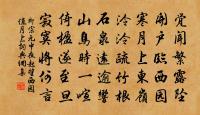 覺聞繁露墜
開戶臨西園
寒月上東嶺
泠泠疏竹根
石泉遠逾響
山鳥時一喧
倚楹遂至旦
寂寞將何言
柳宗元中夜起望西園
值月上詞典網集